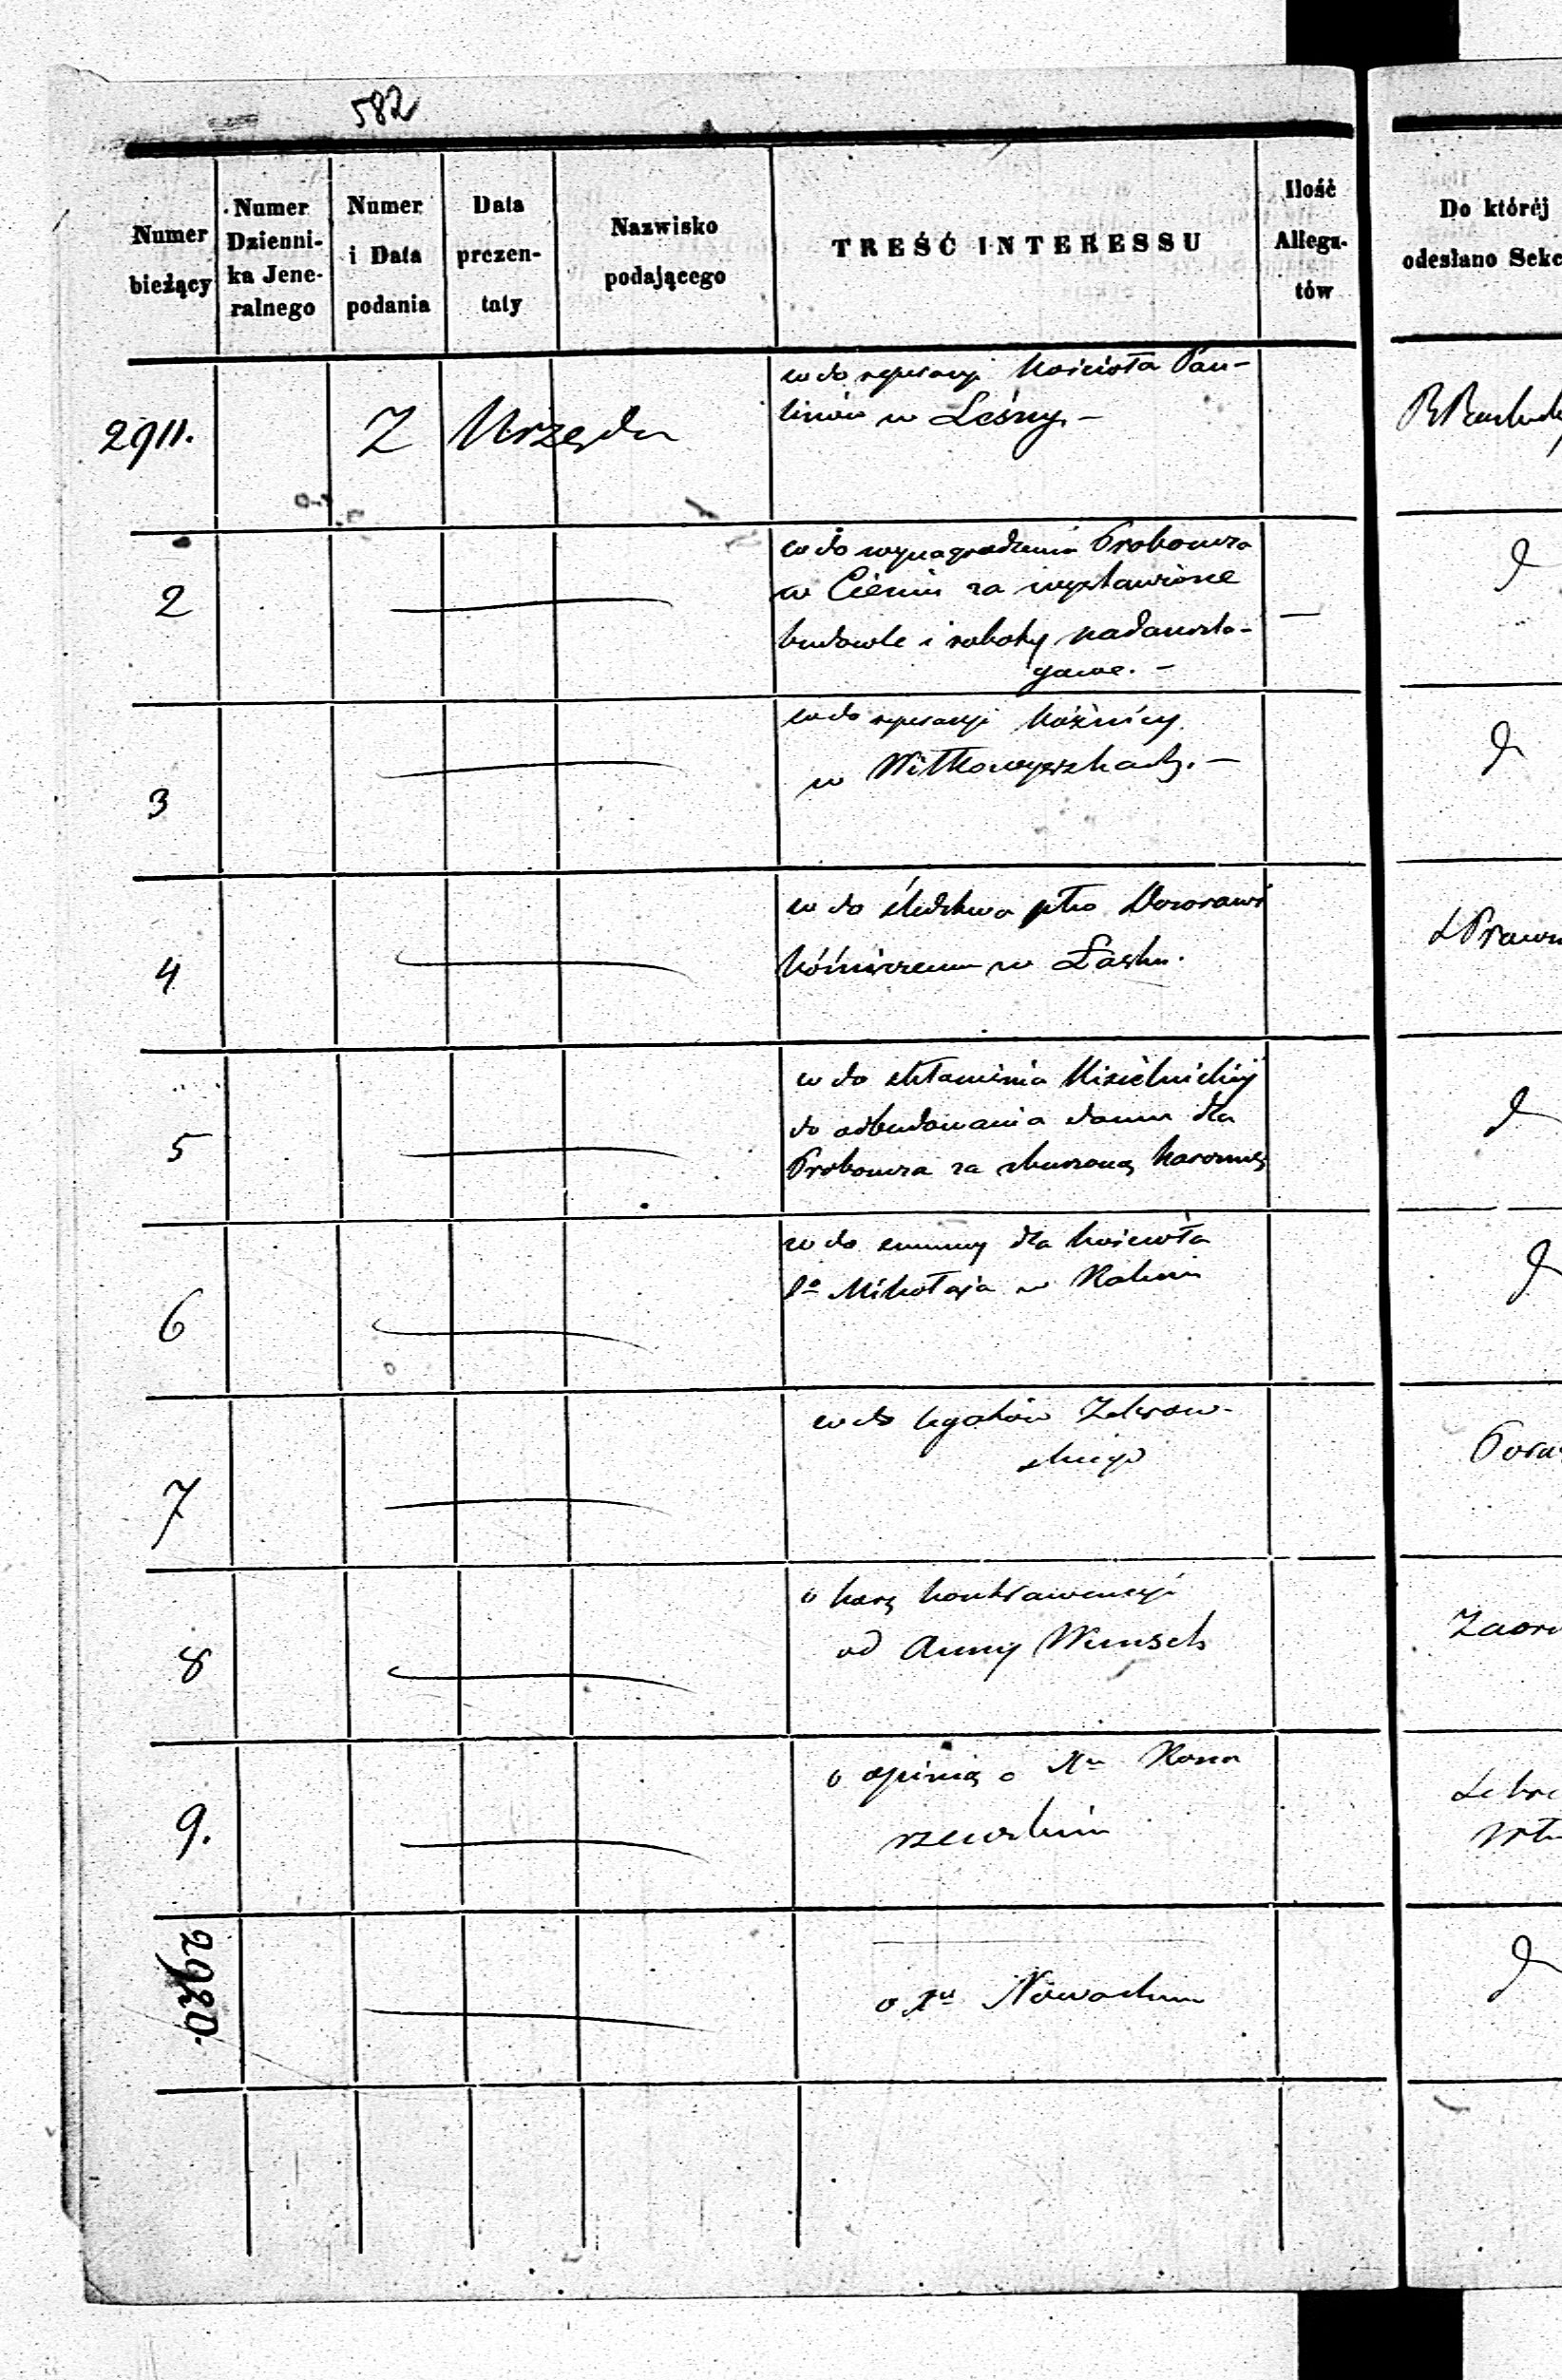 582
Numer bieżący
Numer Dziennika Jeneralnego
Numer i Data podania
Data prezentaty
Nazwisko podającego
TREŚĆ INTERESSU
Ilość Allegatów
Do któréj odesłano Sekc
2911.
Z Urzędu
co do reperacyi Kościoła Pau-
linów w Leśny -
2
co do wynagrodzenia Proboszcza
w Cieniu za wystawione
budowle i roboty nadanszla-
gowe. -
3
co do reperacyi
w Wiłkowyszkach. -
4
co do śledztwa pko Dozorowi
Bóżniczemu w Łasku.
L Prawn
5
co do
do odbudowania domu dla
Proboszcza za zburzoną Karczmę
6
co do summy dla kościoła
So Mikołaja w Kaliszu
7
co do legatów
skiego
8
o karę kontrawencyi
od Anny Wunsch
9.
o opinię o Xu
rzewskim
2920.
o Xu Nowackim